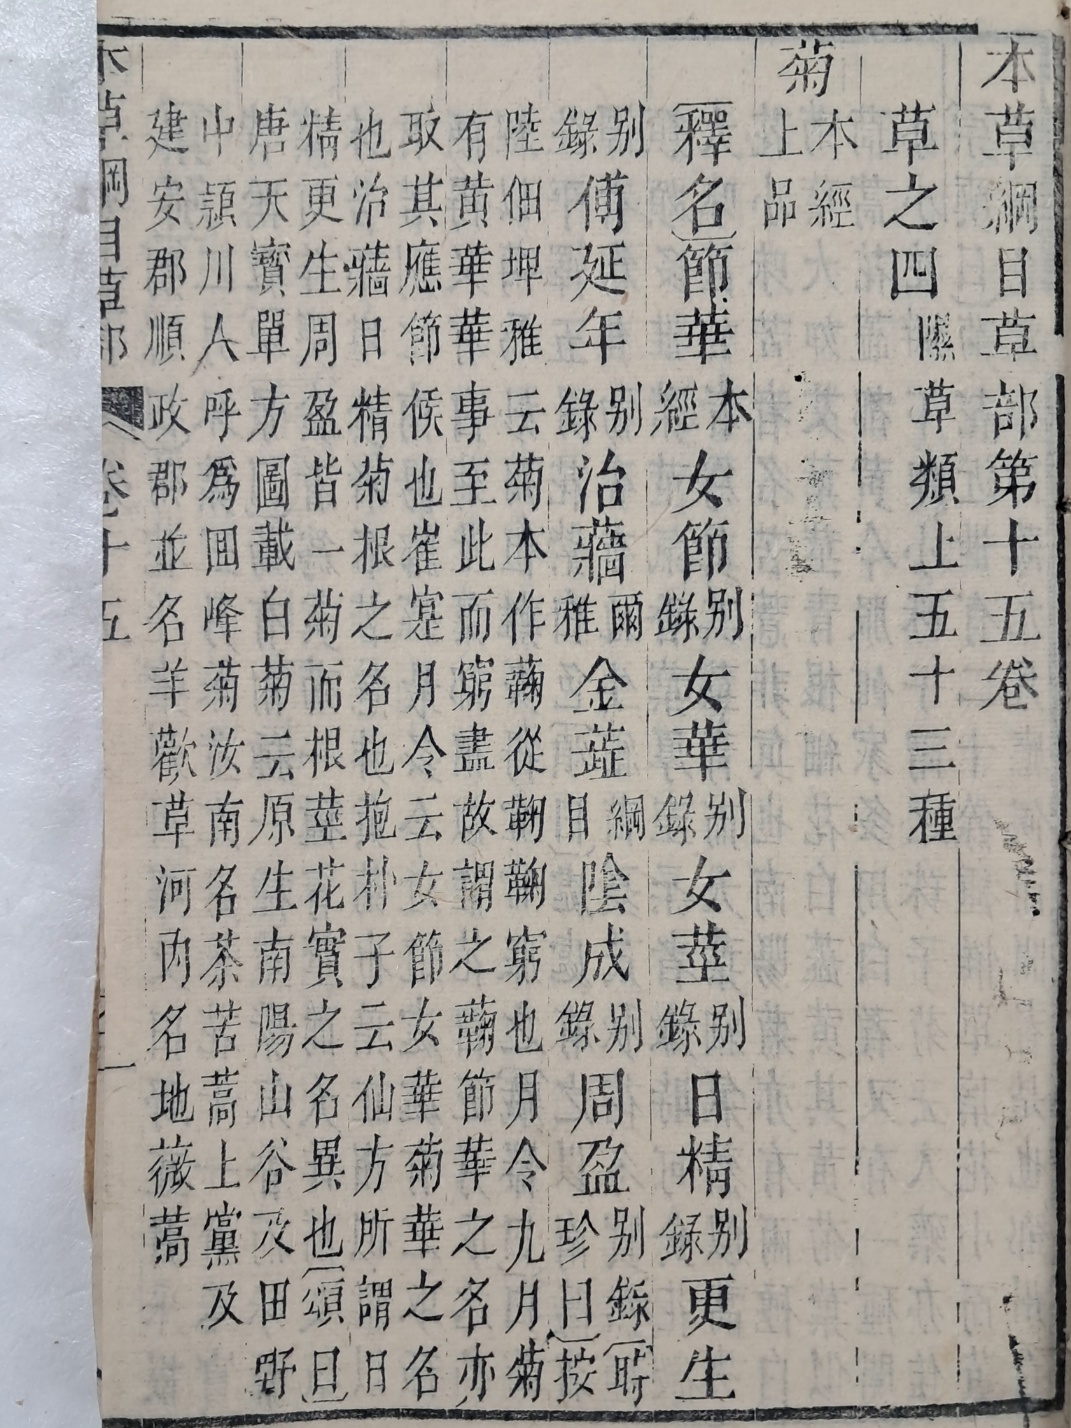 本草綱目草部第十五卷
草之四 隰草類上五十三種
菊 本經上品
〔釋名〕節華本經女節别錄女華别錄女莖别錄日精别錄更生
别錄傅延年别錄治蘠爾雅金蕋綱目陰成别錄周盈别錄〔時珍曰〕按
陸佃埤雅云菊本作蘜從鞠鞠窮也月令九月菊
有黄華華事至此而窮盡故謂之蘜節華之名亦
取其應節候也崔寔月令云女節女華菊華之名
也治蘠日精菊根之名也抱朴子云仙方所謂日
精更生周盈皆一菊而根莖花實之名異也〔頌曰〕
唐天寶單方圖載白菊云原生南陽山谷及田野
中頴川人呼爲回峰菊汝南名茶苦蒿上黨及
建安郡順政郡並名羊歡草河内名地薇蒿
本草綱目草部 卷十五 一